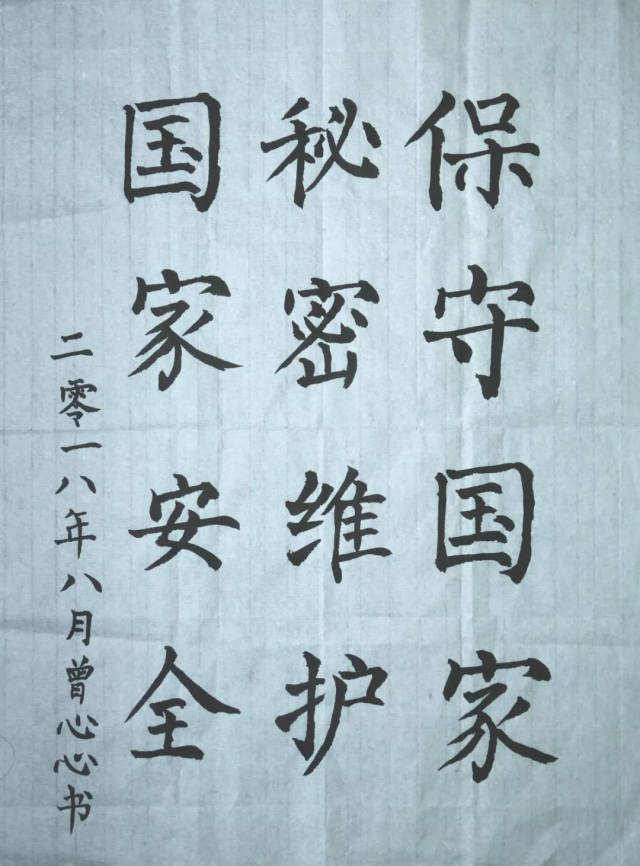 保守国家
秘密维护
国家安全
二零一八年八月曾心心书